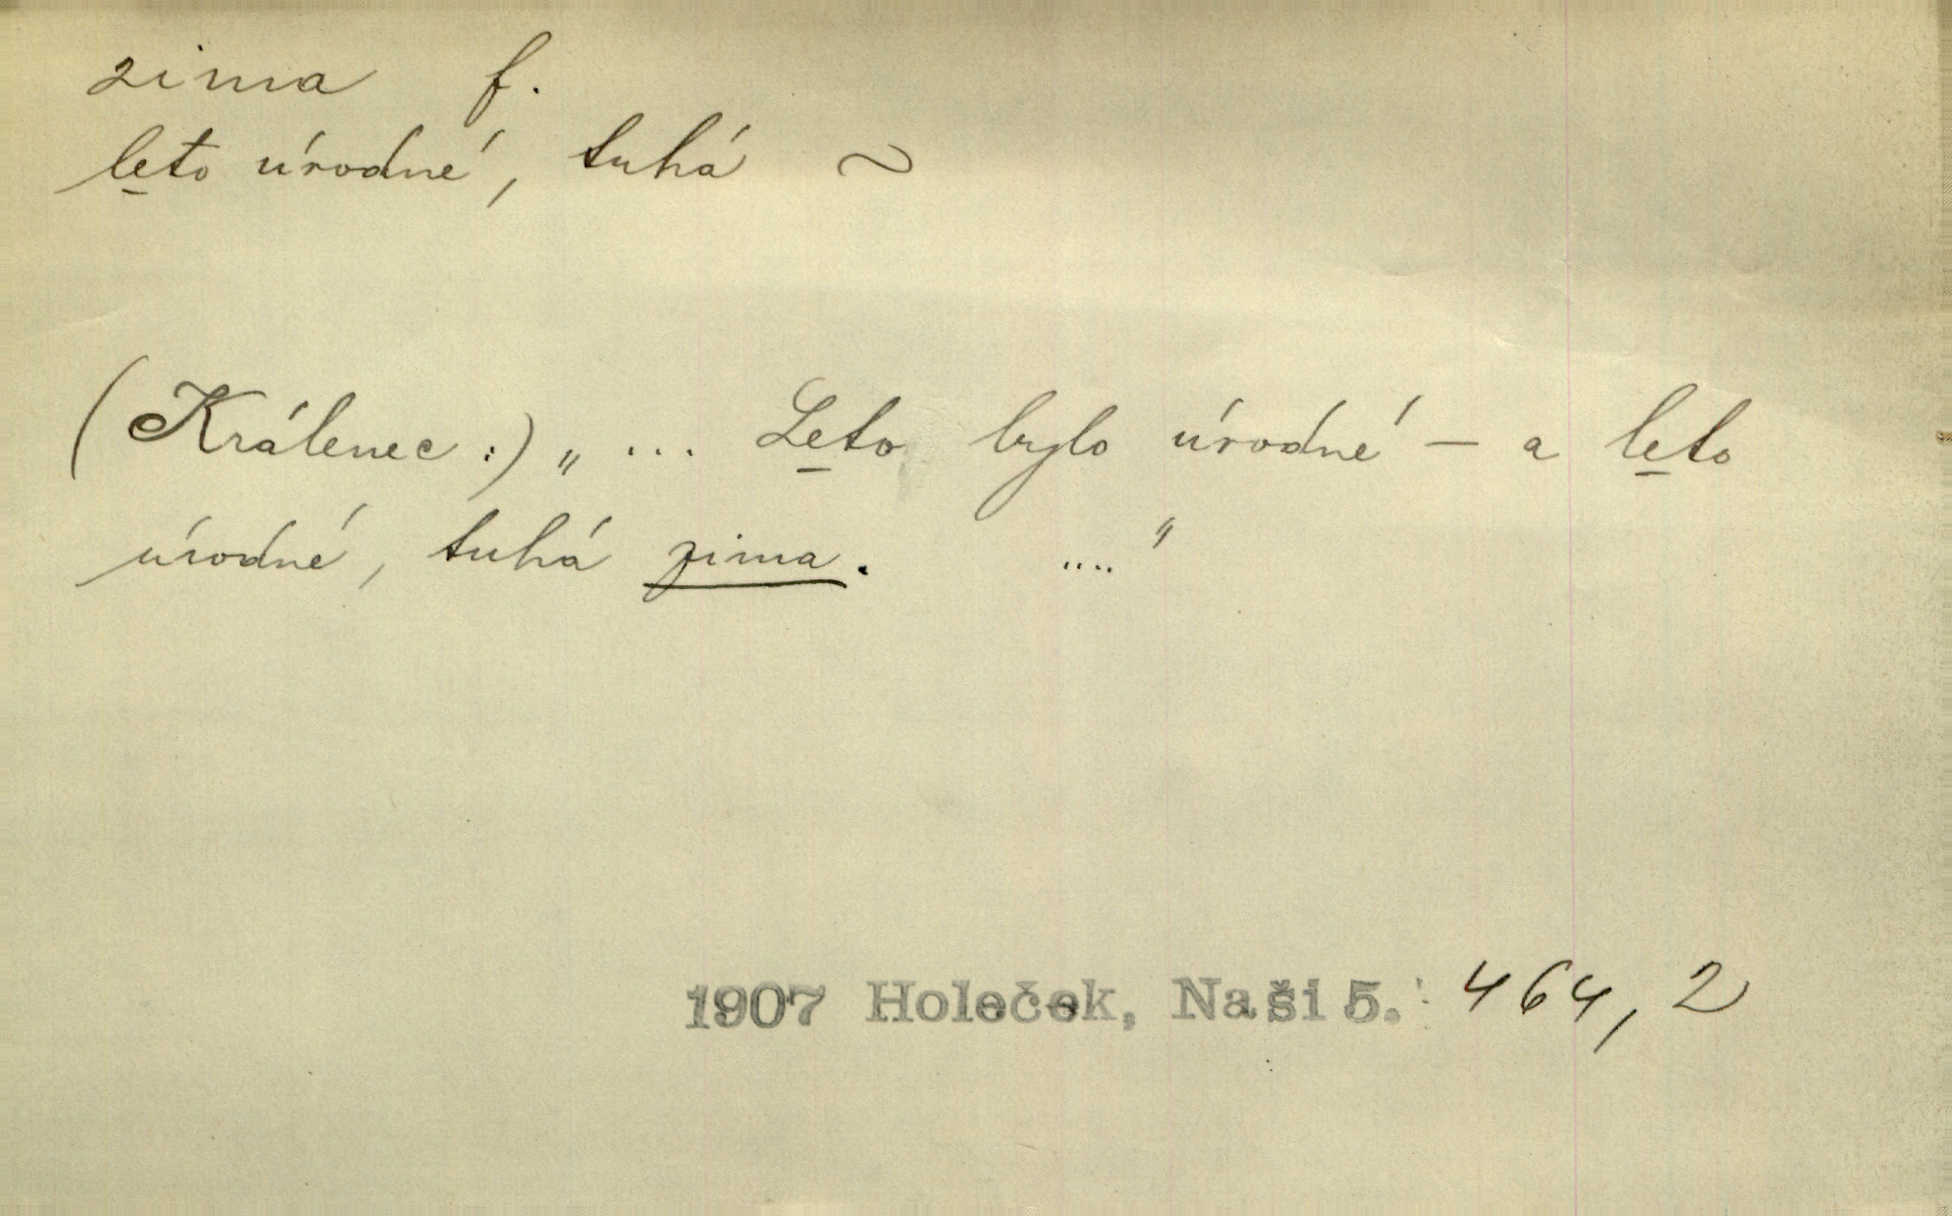 zima f.
leto úrodné, tuhá ~
(Králenec:) „ ... Leto bylo úrodné – a leto
úrodné, tuhá zima. ...."
1907 Holeček, Naši 5. 464, 2